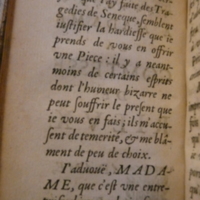 que i'ay faite des Tra-
gedies de Seneque, semblent
iustifier la hardiesse que ie
prends de vous en offrir
vne Piece : il y a neant-
moins de certains esprits
dont l'humeur bizarre ne
peut souffrir le present que
ie vous en fais ; ils m'accu-
sent de temerité, & me blâ-
ment de peu de choix.
I'aduouë, MADA-
ME, que c'est vne entre-